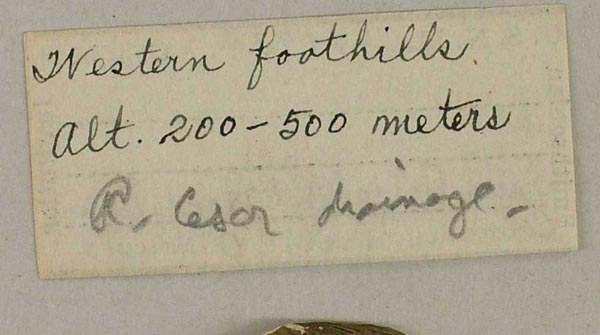 Western foothills.
Alt. 200-500 meters
R. Cesar drainage.